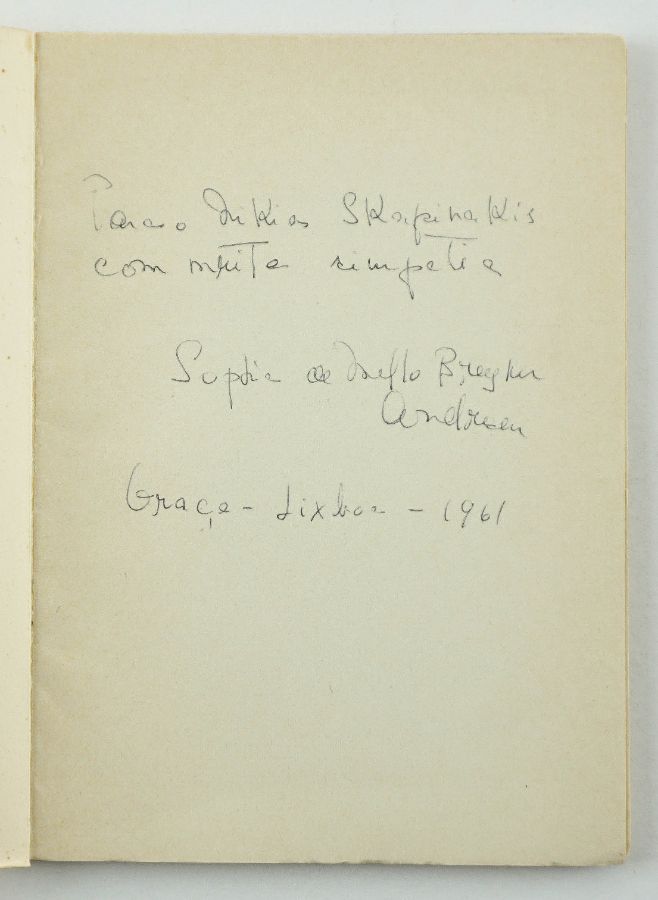 Para o Nikias Skapinakis
com muita simpatia
Sophia de Mello Breyner
Andresen
Graça - Lixboa - 1961